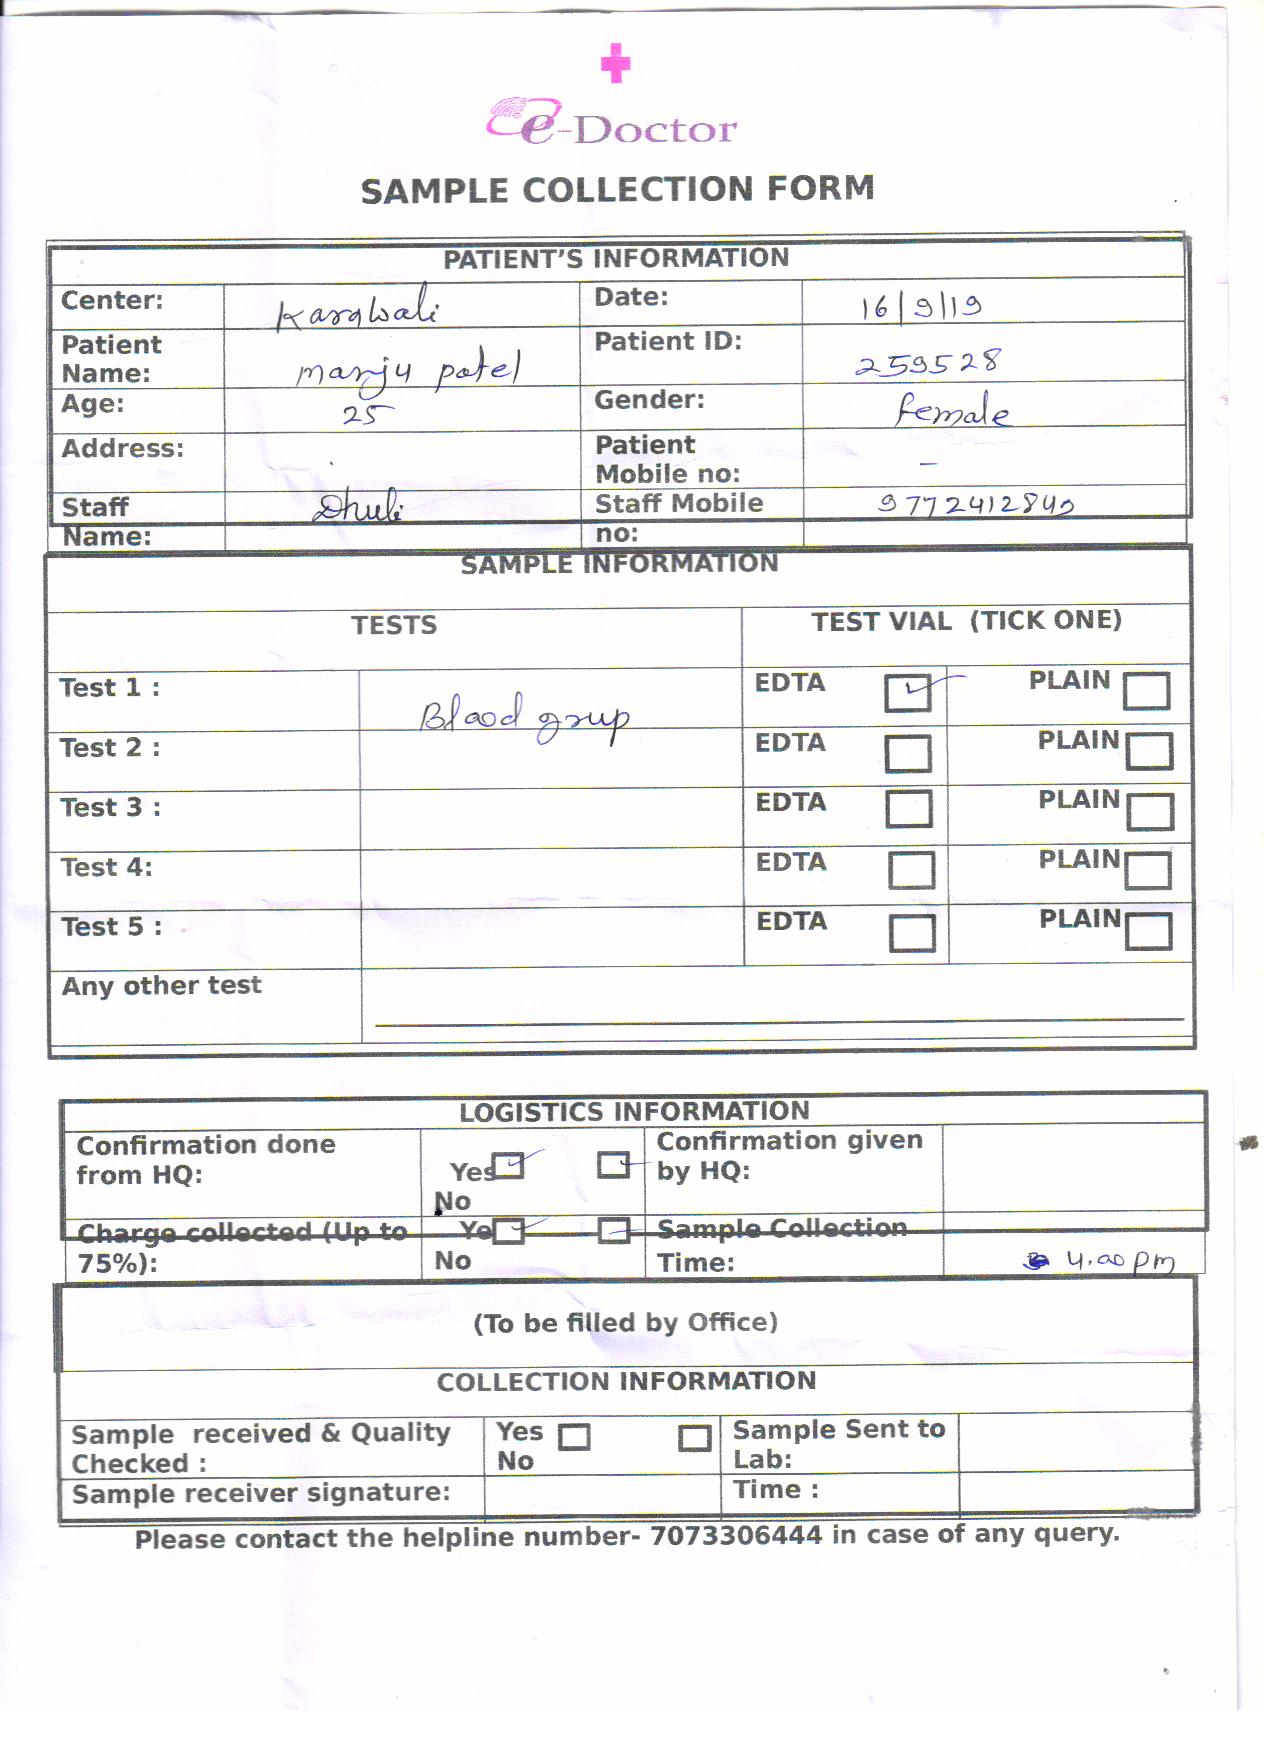 e-Doctor
SAMPLE COLLECTION FORM
PATIENT'S INFORMATION
Center: Karqwali Date: 16/9/19
Patient Name: manju patel Patient ID: 259528
Age: 25 Gender: female
Address: Patient Mobile no: -
Staff Name: Dhuli Staff Mobile no: 9772412840
SAMPLE INFORMATION
TESTS TEST VIAL (TICK ONE)
Test 1 : Blood grup EDTA PLAIN
Test 2 : EDTA PLAIN
Test 3 : EDTA PLAIN
Test 4: EDTA PLAIN
Test 5 : EDTA PLAIN
Any other test
LOGISTICS INFORMATION
Confirmation done from HQ: Yes No Confirmation given by HQ:
Charge collected (Up to 75%): Yes No Sample Collection Time: 4.00 pm
(To be filled by Office)
COLLECTION INFORMATION
Sample received & Quality Checked : Yes No Sample Sent to Lab:
Sample receiver signature: Time :
Please contact the helpline number- 7073306444 in case of any query.